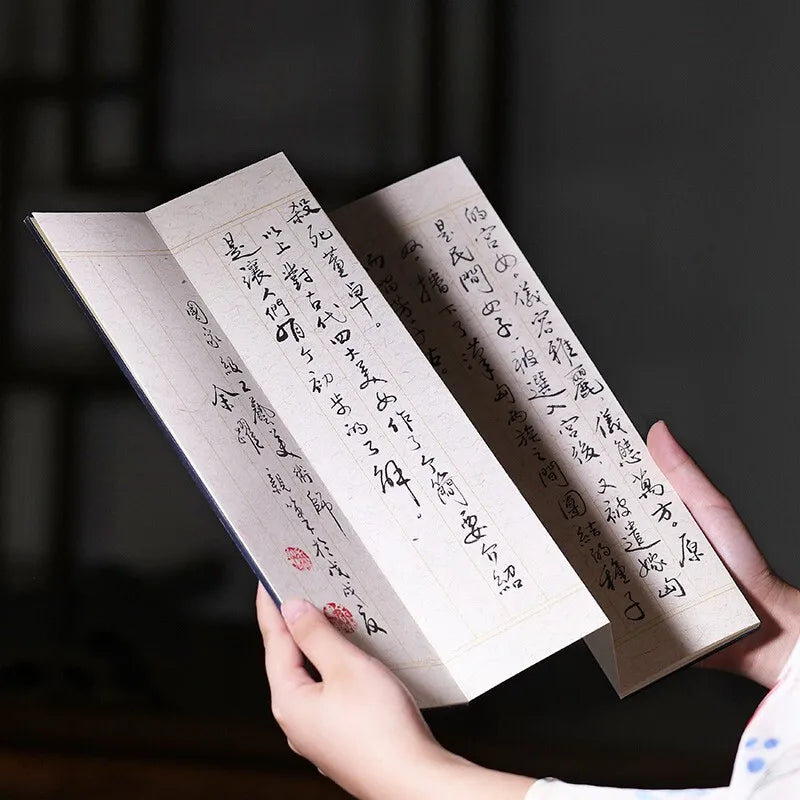 的宮女。儀容雅麗，儀態萬方。原
是民間女子，被選入宮後，又被遣嫁匈
奴，播下了漢匈兩族之間團結的種子
而留芳千古。
殺死董卓。
以上對古代四大美女作了个簡要介紹
是讓人們有个初步的了解。
國家級工藝美術師
余 親筆於戊戌夏